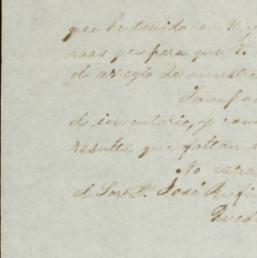 que he tenido con U. y
nos que para que U.
el arreglo de nuestro
el inventario, y
resulta que faltan
No
el Sor. D. José Rufi